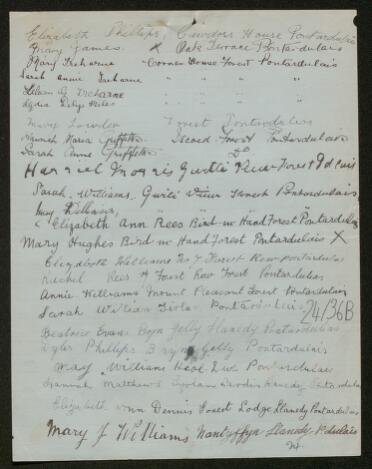 Elizabeth Phillips, Cawdors House Pontardulais
Mary James. X Oak Terrace Pontardulais
Mary Treharne Corner House Forest Pontardulais
Sarah Annie Treharne " " "
Lilian G Treharne " " "
Lydia Lily Miles " " "
Mary Forest Pontardulais
Hannah Maria Griffiths Forest Pontardulais
Sarah Anne Griffiths Do
Harriet Morris View Forest Pdulais
Sarah. Williams. View Forest Pontardulais
May " " "
Elizabeth Ann Rees Bird in Hand Forest Pontardulais
Mary Hughes Bird in Hand Forest Pontardulais X
Elizabeth Williams No 7 Forest Row Pontardulais
Rachel Rees Forest Row Forest Pontardulais
Annie Williams Mount Pleasant Forest Pontardulais
Sarah William Pontardulais
24/36B
Beatrice Evans Bryn Gelly Llanedy Pontardulais
Phillips Bryn Gelly Pontardulais
May Williams Pontardulais
Hannah Matthews Llanedy Pontardulais
Elizabeth Ann Dennis Forest Lodge Llanedy Pontardulais
Mary J Williams Nantyffyn Llanedy Pdulais